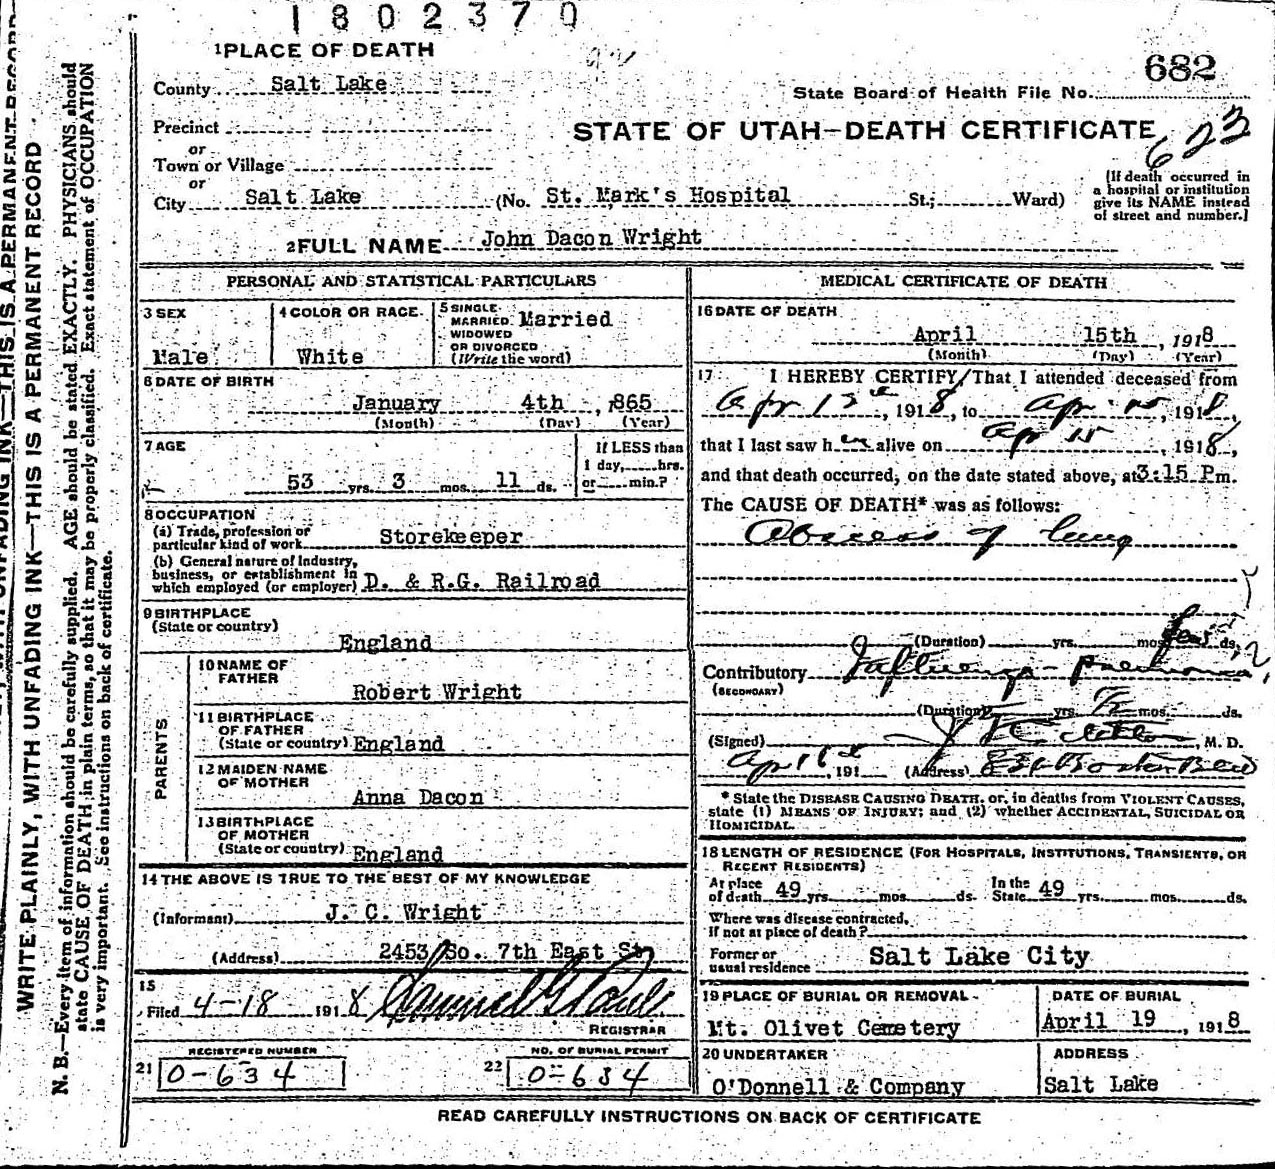 1802370
1 PLACE OF DEATH
682
County Salt Lake
State Board of Health File No.
Precinct
STATE OF UTAH—DEATH CERTIFICATE
623
or
Town or Village
or
City Salt Lake (No. St. Mark's Hospital St.; Ward)
(If death occurred in
a hospital or institution
give its NAME instead
of street and number.)
2 FULL NAME John Dacon Wright
PERSONAL AND STATISTICAL PARTICULARS
3 SEX
Male
4 COLOR OR RACE
White
5 SINGLE
MARRIED Married
WIDOWED
OR DIVORCED
(Write the word)
6 DATE OF BIRTH
January 4th , 1865
(Month) (Day) (Year)
7 AGE
53 yrs. 3 mos. 11 ds.
If LESS than
1 day, hrs.
or min.?
8 OCCUPATION
(a) Trade, profession or
particular kind of work Storekeeper
(b) General nature of Industry,
business, or establishment in
which employed (or employer) D. & R.G. Railroad
9 BIRTHPLACE
(State or country)
England
PARENTS
10 NAME OF
FATHER
Robert Wright
11 BIRTHPLACE
OF FATHER
(State or country) England
12 MAIDEN NAME
OF MOTHER
Anna Dacon
13 BIRTHPLACE
OF MOTHER
(State or country) England
14 THE ABOVE IS TRUE TO THE BEST OF MY KNOWLEDGE
(Informant) J. C. Wright
(Address) 2453 So. 7th East St
15
Filed 4-18- 1918
REGISTRAR
REGISTERED NUMBER
21 0-634
NO. OF BURIAL PERMIT
22 0-634
MEDICAL CERTIFICATE OF DEATH
16 DATE OF DEATH
April 15th , 1918
(Month) (Day) (Year)
17 I HEREBY CERTIFY, That I attended deceased from
Apr , 1918, to Apr 15, 1918,
that I last saw h alive on Apr 15 , 1918,
and that death occurred, on the date stated above, at 3:15 P m.
The CAUSE OF DEATH* was as follows:
Abscess of lung
(Duration) yrs. mos. ds.
Contributory Influenza - pneumonia
(SECONDARY)
(Duration) yrs. 1/2 mos. ds.
(Signed) , M. D.
Apr 16th , 191 (Address) Boston Bldg
* State the DISEASE CAUSING DEATH, or, in deaths from VIOLENT CAUSES,
state (1) MEANS OF INJURY; and (2) whether ACCIDENTAL, SUICIDAL OR
HOMICIDAL.
18 LENGTH OF RESIDENCE (FOR HOSPITALS, INSTITUTIONS, TRANSIENTS, OR
RECENT RESIDENTS)
At place
of death 49 yrs. mos. ds. In the
State 49 yrs. mos. ds.
Where was disease contracted,
if not at place of death?
Former or
usual residence Salt Lake City
19 PLACE OF BURIAL OR REMOVAL
Mt. Olivet Cemetery
DATE OF BURIAL
April 19 , 1918
20 UNDERTAKER
O'Donnell & Company
ADDRESS
Salt Lake
READ CAREFULLY INSTRUCTIONS ON BACK OF CERTIFICATE
WRITE PLAINLY, WITH UNFADING INK—THIS IS A PERMANENT RECORD
N. B.—Every item of information should be carefully supplied. AGE should be stated EXACTLY. PHYSICIANS should
state CAUSE OF DEATH in plain terms, so that it may be properly classified. Exact statement of OCCUPATION
is very important. See instructions on back of certificate.